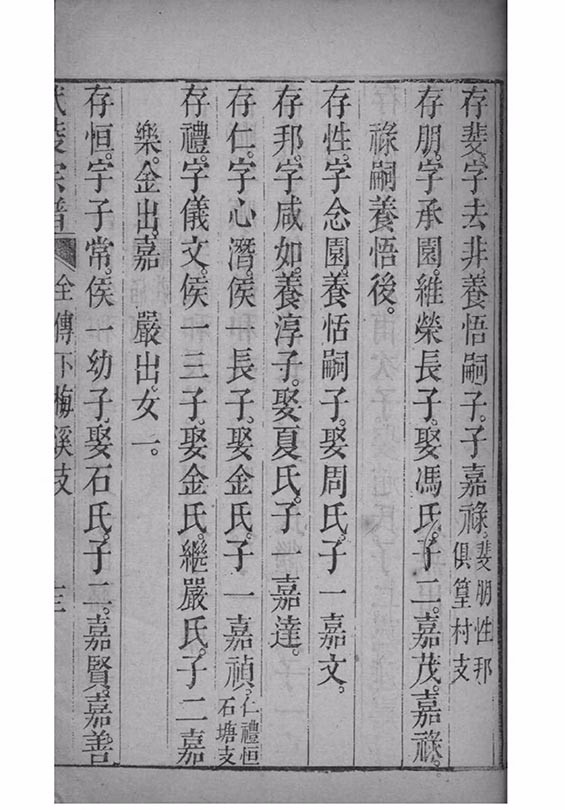 存斐。字去非。養悟嗣子。子嘉祿。斐朋性邦俱篁村支
存朋。字承園。維榮長子。娶馮氏。子二。嘉茂。嘉祿。
祿嗣養悟後。
存性。字念園。養恬嗣子。娶周氏。子一嘉文。
存邦。字咸如。養淳子。娶夏氏。子一嘉達。
存仁。字心潛。侯一長子。娶金氏。子一嘉禎。仁禮恒石塘支
存禮。字儀文。侯一三子。娶金氏。繼嚴氏。子二嘉
樂。金出。嘉 嚴出。女一。
存恒。字子常。侯一幼子。娶石氏。子二。嘉賢。嘉善
宗譜 全傳下梅溪支